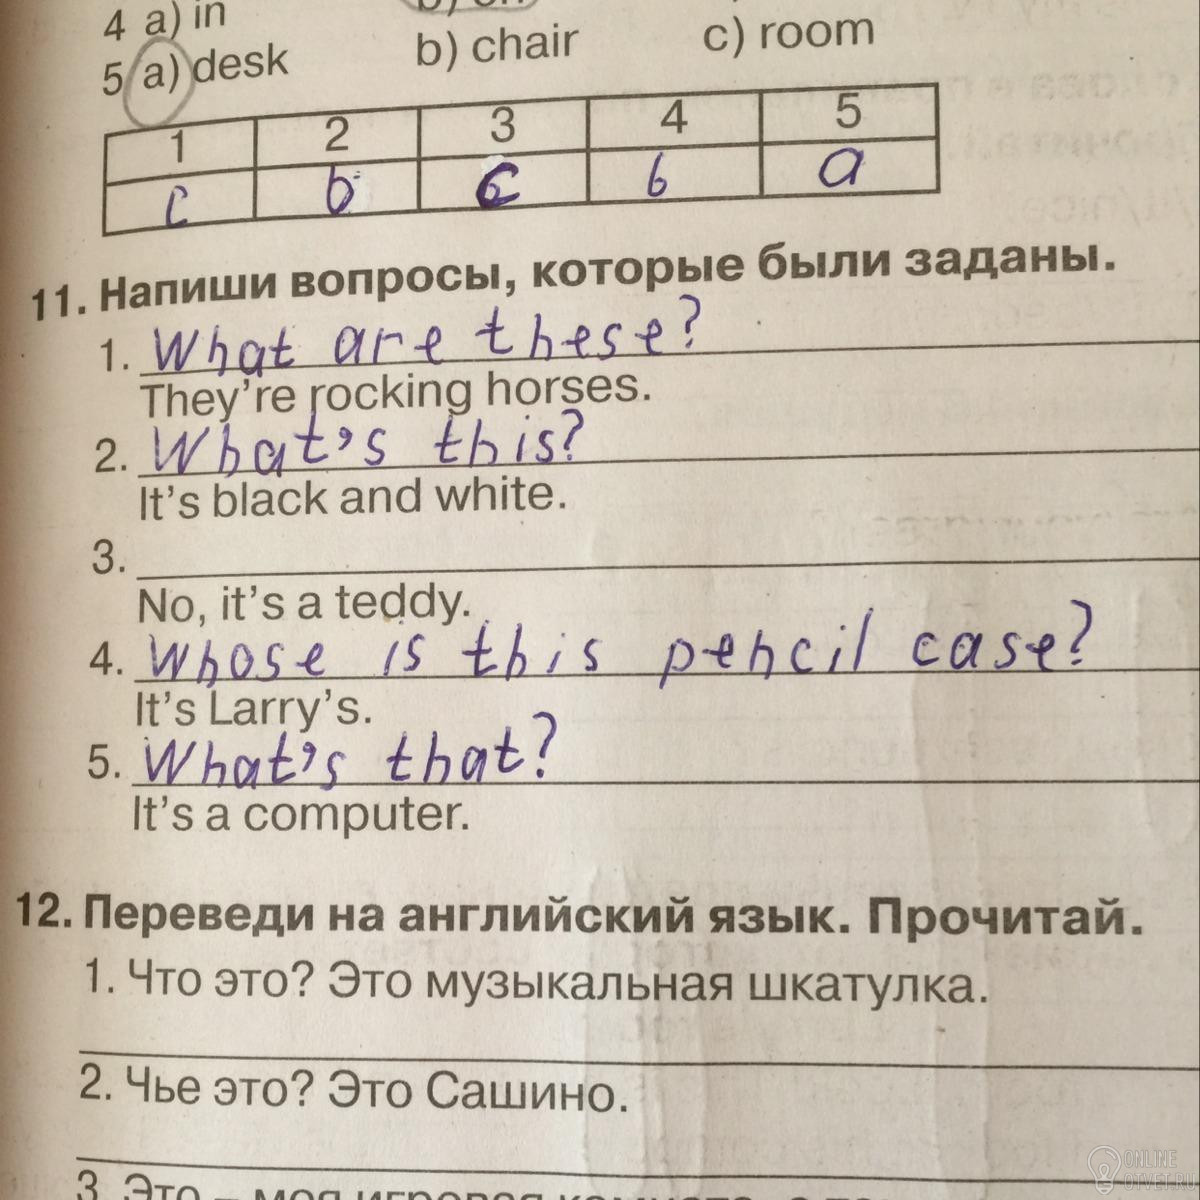 4 a) in b) on
5 a) desk b) chair c) room
1 2 3 4 5
c b c b a
11. Напиши вопросы, которые были заданы.
1. What are these?
They're rocking horses.
2. What's this?
It's black and white.
3.
No, it's a teddy.
4. Whose is this pencil case?
It's Larry's.
5. What's that?
It's a computer.
12. Переведи на английский язык. Прочитай.
1. Что это? Это музыкальная шкатулка.
2. Чье это? Это Сашино.
3. Это – моя игровая комната, а
ONLINE
OTVET.RU